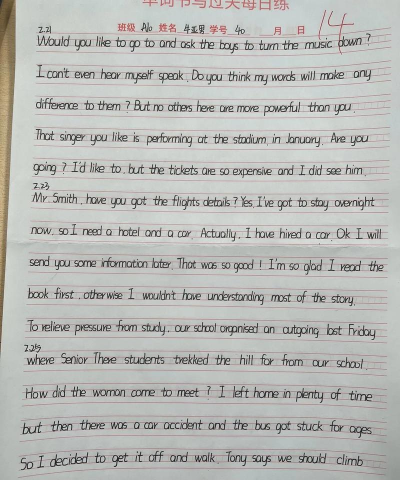 单词书写过关每日练
班级 姓名 学号 40 月 日
14
2.21
Would you like to go to and ask the boys to turn the music down?
I can't even hear myself speak. Do you think my words will make any
difference to them? But no others here are more powerful than you.
That singer you like is performing at the stadium in January. Are you
going? I'd like to, but the tickets are so expensive and I did see him.
2.23
Mr. Smith, have you got the flights details? Yes, I've got to stay overnight
now, so I need a hotel and a car. Actually, I have hired a car. Ok I will
send you some information later. That was so good! I'm so glad I read the
book first, otherwise I wouldn't have understanding most of the story.
To relieve pressure from study, our school organised an outgoing last Friday
2.25
where Senior Three students trekked the hill far from our school.
How did the woman come to meet? I left home in plenty of time
but then there was a car accident and the bus got stuck for ages
So I decided to get it off and walk. Tony says we should climb